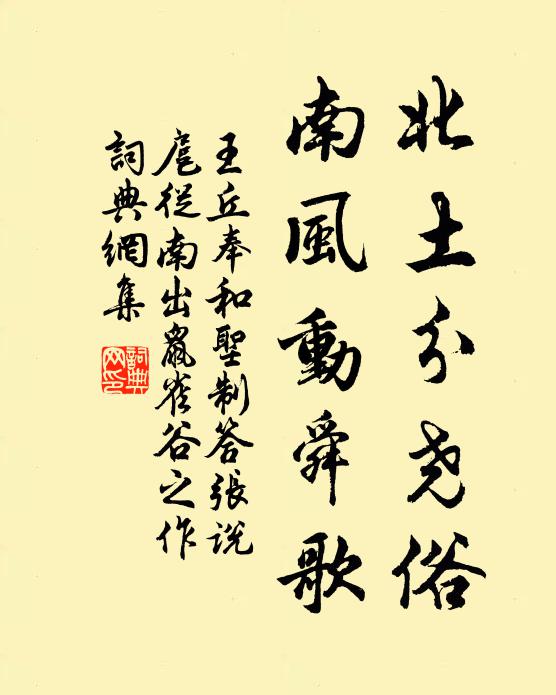 北土分尧俗
南風動舜歌
王丘奉和聖制答張説
扈從南出鼠雀谷之作
詞典網集
詞典網印